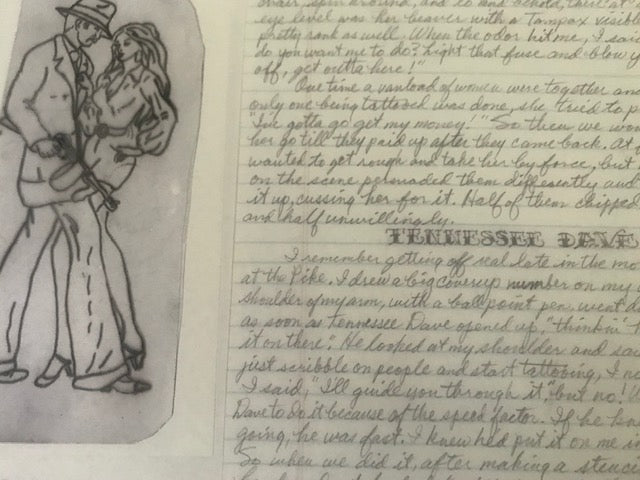 chair, spin around, and lo and behold, there at
eye level was her beaver with a Tampax visible
pretty rank as well. When the odor hit me, I said
do you want me to do? Light that fuse and blow y
off, get outta here!"
One time a vanload of women were together and
only one being tattooed was done, she tried to p
"I've gotta go get my money!" So then we won
her go till they paid up after they came back. At f
wanted to get rough and take her by force, but
on the scene persuaded them differently and
it up, cussing her for it. Half of them chipped
and half unwillingly.
TENNESSEE DAVE
I remember getting off real late in the mo
at the Pike. I drew a big coverup number on my
shoulder of my arm, with a ball point pen. went do
as soon as Tennessee Dave opened up, "thinkin'
it on there". He looked at my shoulder and sai
just scribble on people and start tattooing, I
I said, "I'll guide you through it", but no!
Dave to do it because of the speed factor. If he
going, he was fast. I knew he'd put it on me in
So when we did it, after making a stenci